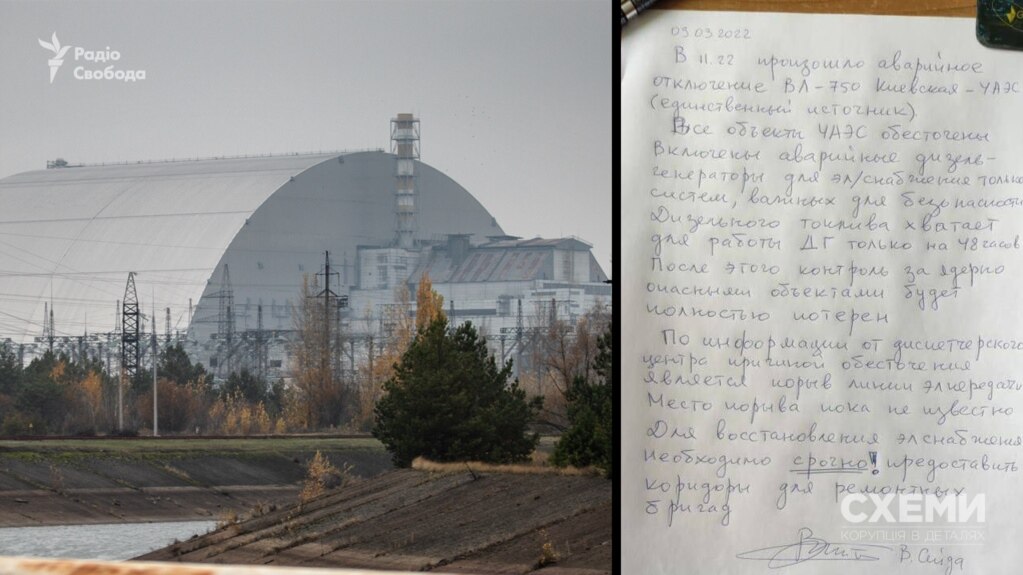 Радіо
Свобода
09.03.2022
В 11.22 произошло аварийное
отключение ВЛ-750 Киевская-ЧАЭС
(единственный источник)
Все объекты ЧАЭС обесточены
Включены аварийные дизель-
генераторы для эл/снабжения только
систем, важных для безопасности
Дизельного топлива хватает
для работы ДГ только на 48 часов
После этого контроль за ядерно
опасными объектами будет
полностью потерян
По информации от диспетчерского
центра причиной обесточения
является порыв линии эл передачи
Место порыва пока не известно
Для восстановления эл снабжения
необходимо срочно! предоставить
коридоры для ремонтных
бригад
В. Сейда
СХЕМИ
КОРУПЦІЯ В ДЕТАЛЯХ